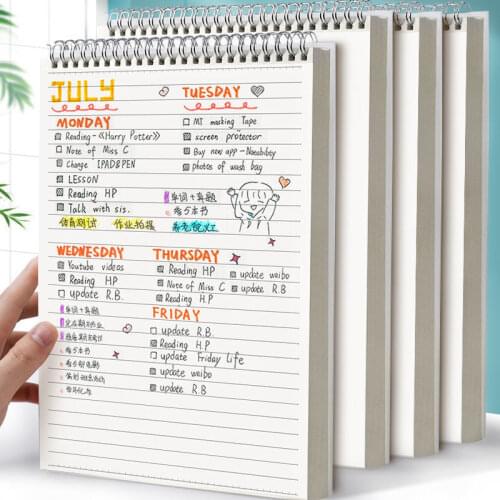 JULY
MONDAY
Reading-《Harry Potter》
Note of Miss C
Change IPAD&PEN
LESSON
Reading HP
Talk with sis.
体育测试 作业拍摄
TUESDAY
MT masking Tape
screen protector
Buy new app-Notability
photos of wash bag
单词+真题
看5本书
WEDNESDAY
Youtube videos
Reading HP
update R.B.
单词+真题
看5本书
THURSDAY
Reading HP
update weibo
Note of Miss C
update R.B
Reading H.P
FRIDAY
update R.B.
Reading H.P
update Friday Life
update weibo
update R.B